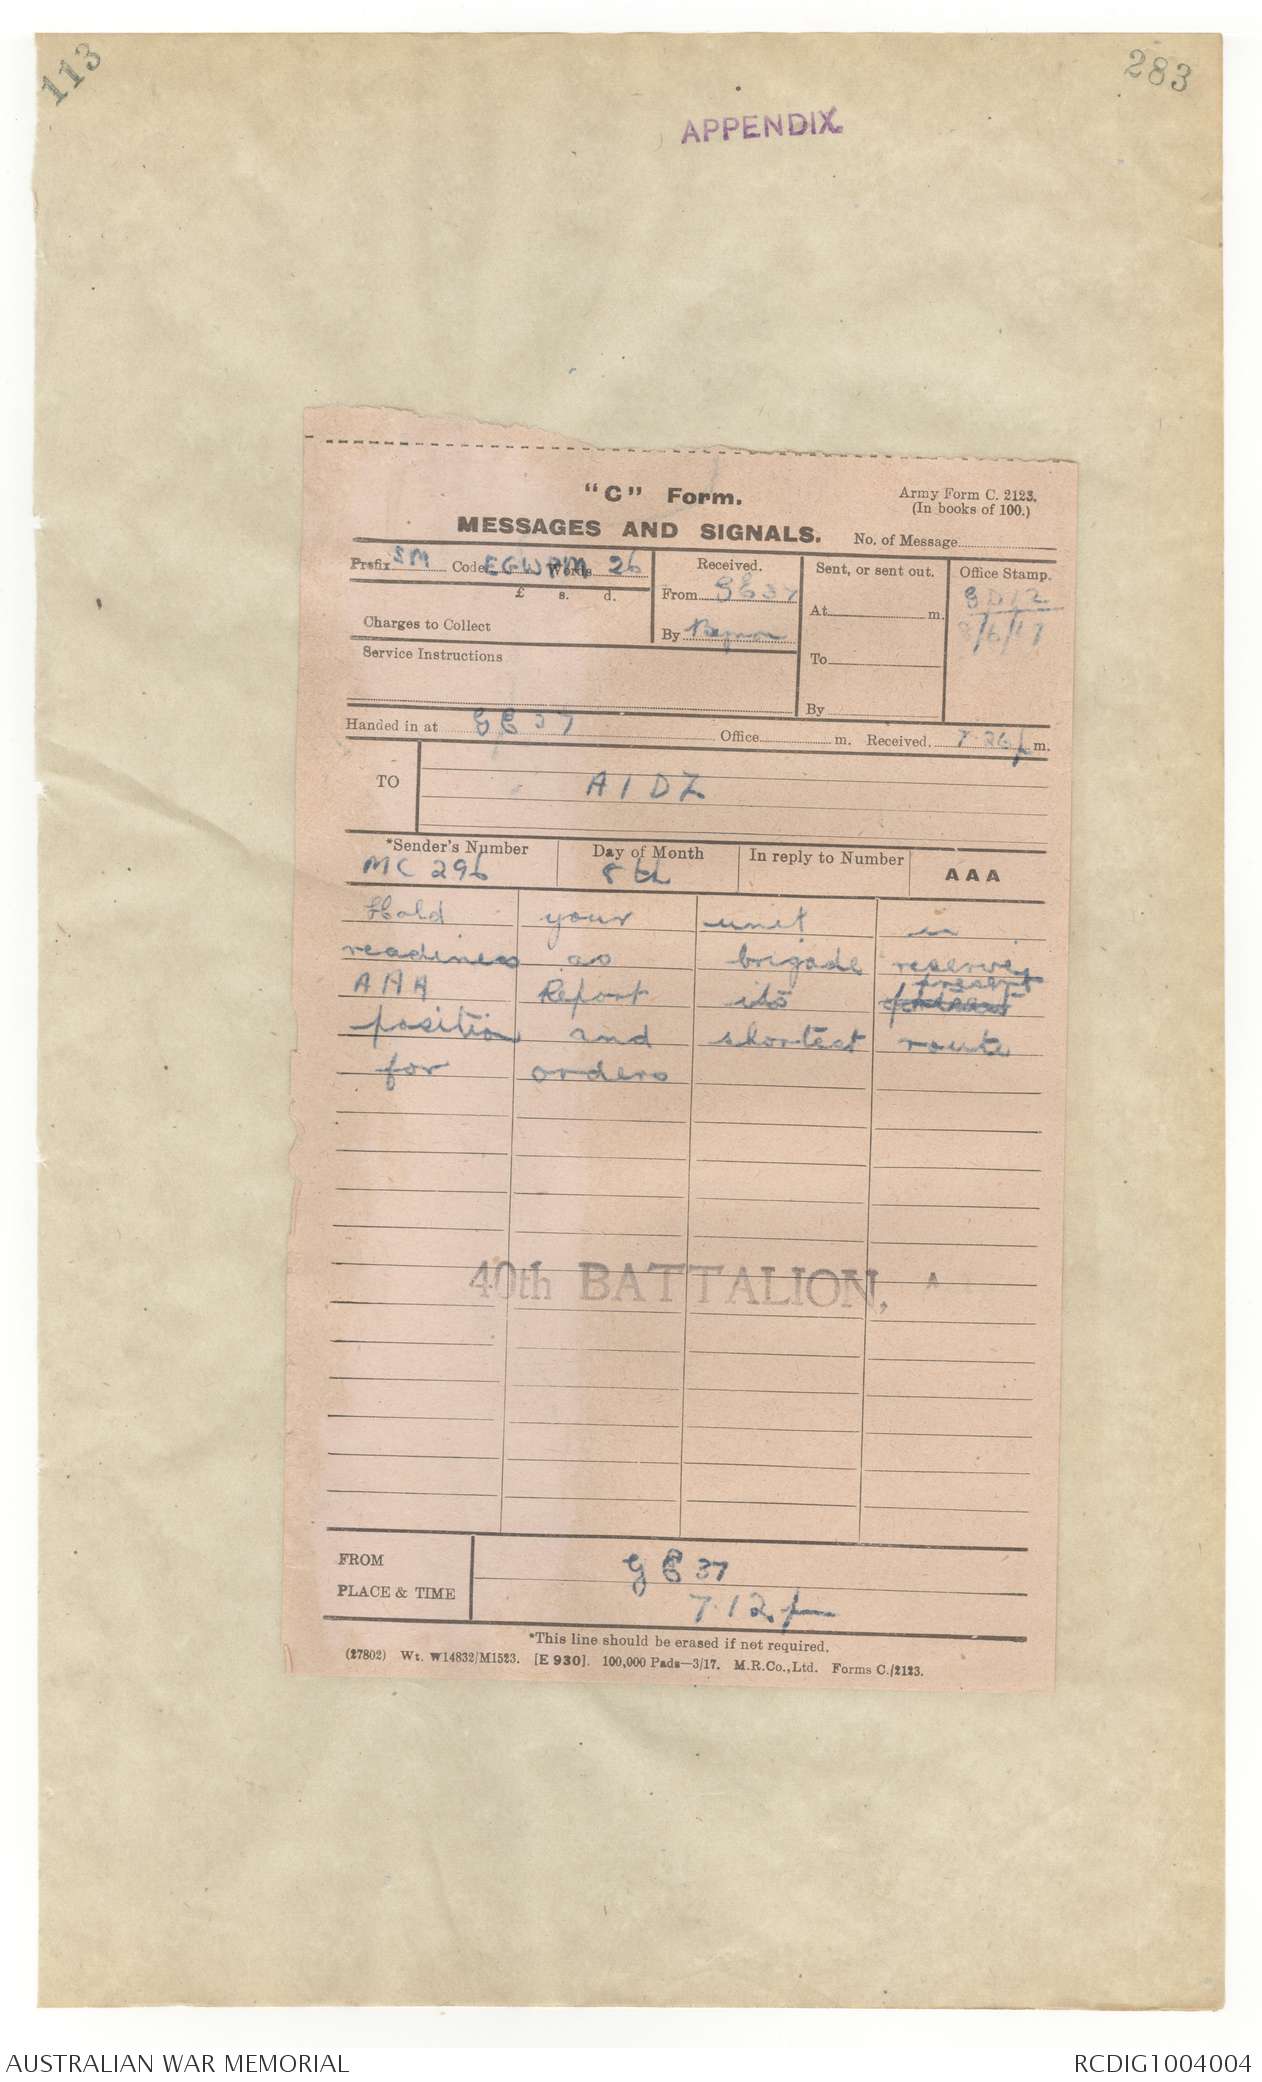 113
283
APPENDIX.
"C" Form.
Army Form C. 2123.
(In books of 100.)
MESSAGES AND SIGNALS.
No. of Message
Prefix SM Code EGWPM Words 26
£ s. d.
Charges to Collect
Service Instructions
Received.
From GE37
By
Sent, or sent out.
At m.
To
By
Office Stamp.
GD12
8/6/17
Handed in at GE37 Office m. Received. 7.26p m.
TO AIDZ
*Sender's Number Day of Month In reply to Number AAA
MC 296 8th
Hold your unit in
readiness as brigade reserve
AAA Report its present
position and shortest route
for orders
40th BATTALION, A
FROM GE37
PLACE & TIME 7.12 p
*This line should be erased if not required.
(27802) Wt. W14832/M1523. [E 930]. 100,000 Pads—3/17. M.R.Co.,Ltd. Forms C./2123.
AUSTRALIAN WAR MEMORIAL
RCDIG1004004